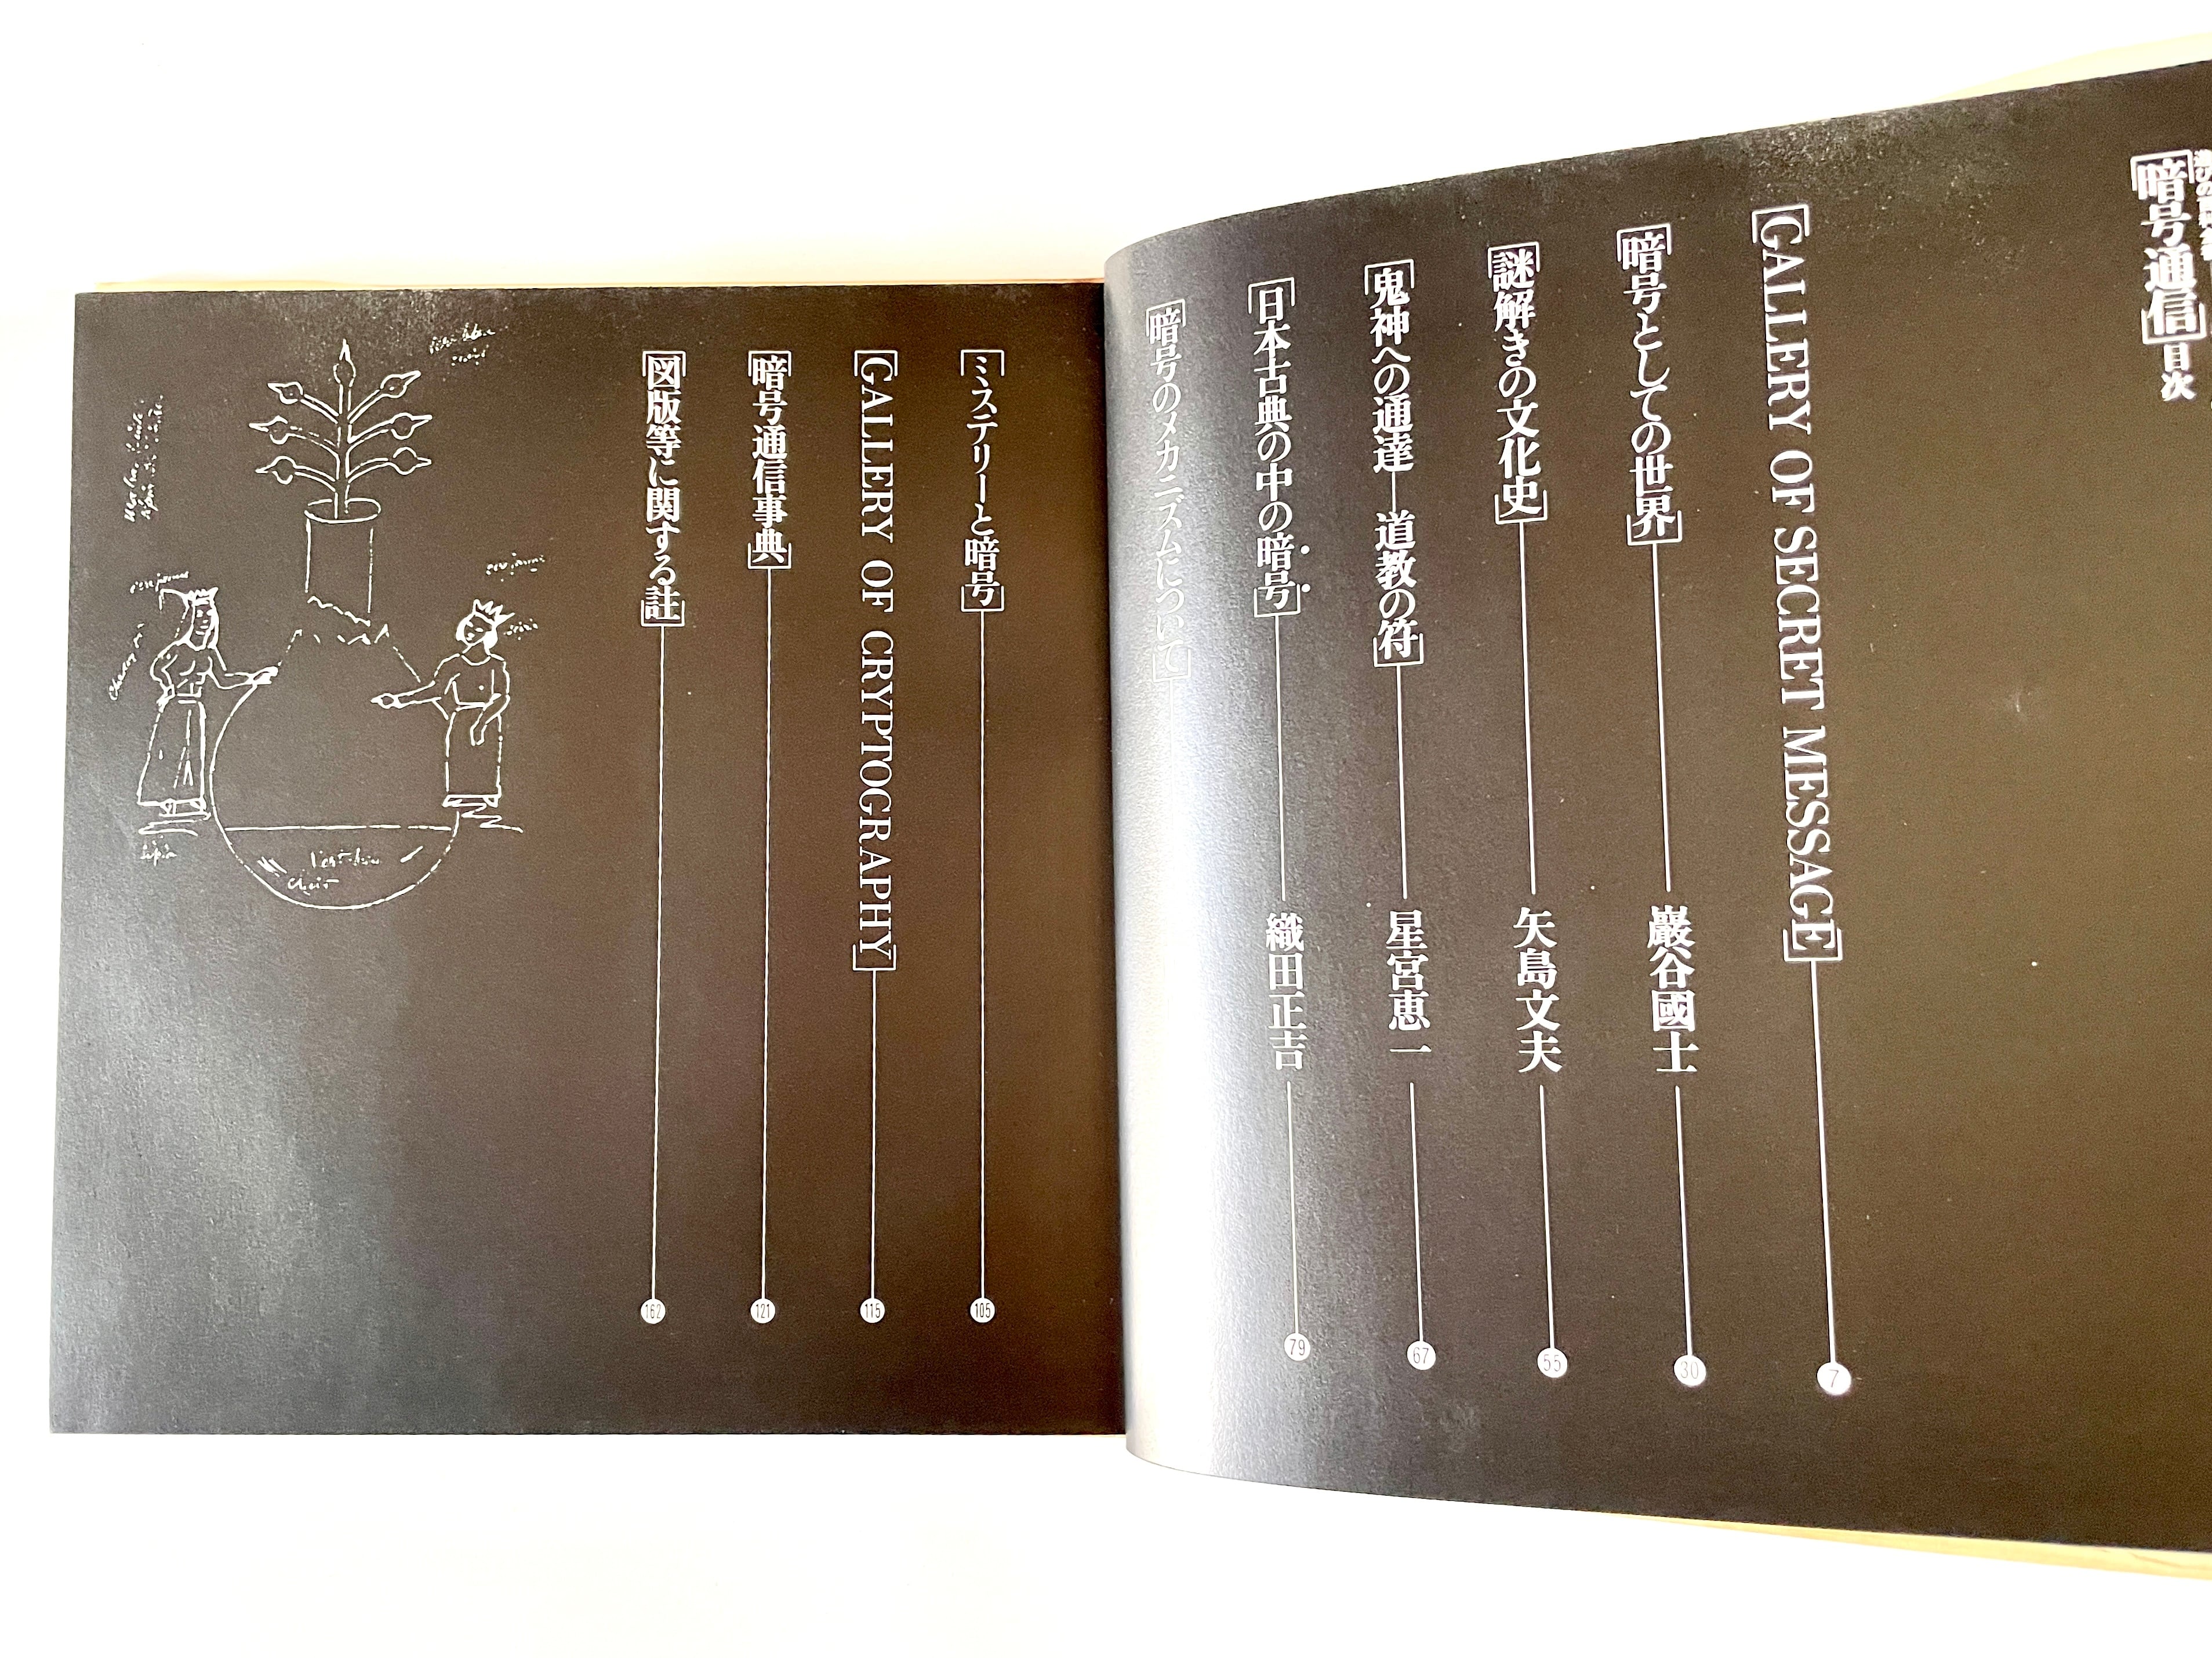 「暗号通信」目次
「GALLERY OF SECRET MESSAGE」 7
「暗号としての世界」 巖谷國士 30
「謎解きの文化史」 矢島文夫 55
「鬼神への通達―道教の符」 星宮恵一 67
「日本古典の中の暗号」 織田正吉 79
「暗号のメカニスムについて」
「ミステリーと暗号」 105
「GALLERY OF CRYPTOGRAPHY」 115
「暗号通信事典」 121
「図版等に関する註」 162